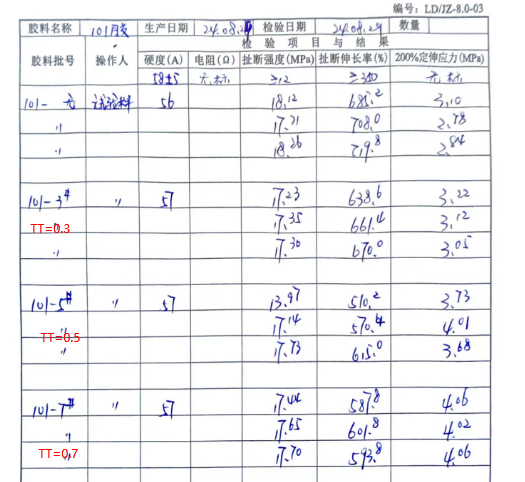 编号: LD/JZ-8.0-03
胶料名称 101胶 生产日期 24.08.29 检验日期 24.08.29 数量
检 验 项 目 与 结 果
胶料批号 操作人 硬度(A) 电阻(Ω) 扯断强度(MPa) 扯断伸长率(%) 200%定伸应力(MPa)
58±5 无标 ≥12 ≥340 无标
101- 无 试验料 56 18.12 685.2 3.10
〃 17.71 708.0 2.78
〃 18.26 719.8 2.84
101-3# 〃 57 17.23 638.6 3.22
TT=0.3 17.35 661.4 3.12
〃 17.30 670.0 3.05
101-5# 〃 57 13.97 510.2 3.73
TT=0.5 17.14 570.4 4.01
〃 17.73 615.0 3.68
101-7# 〃 57 17.44 587.8 4.06
〃 17.65 601.8 4.02
TT=0.7 17.70 593.8 4.06